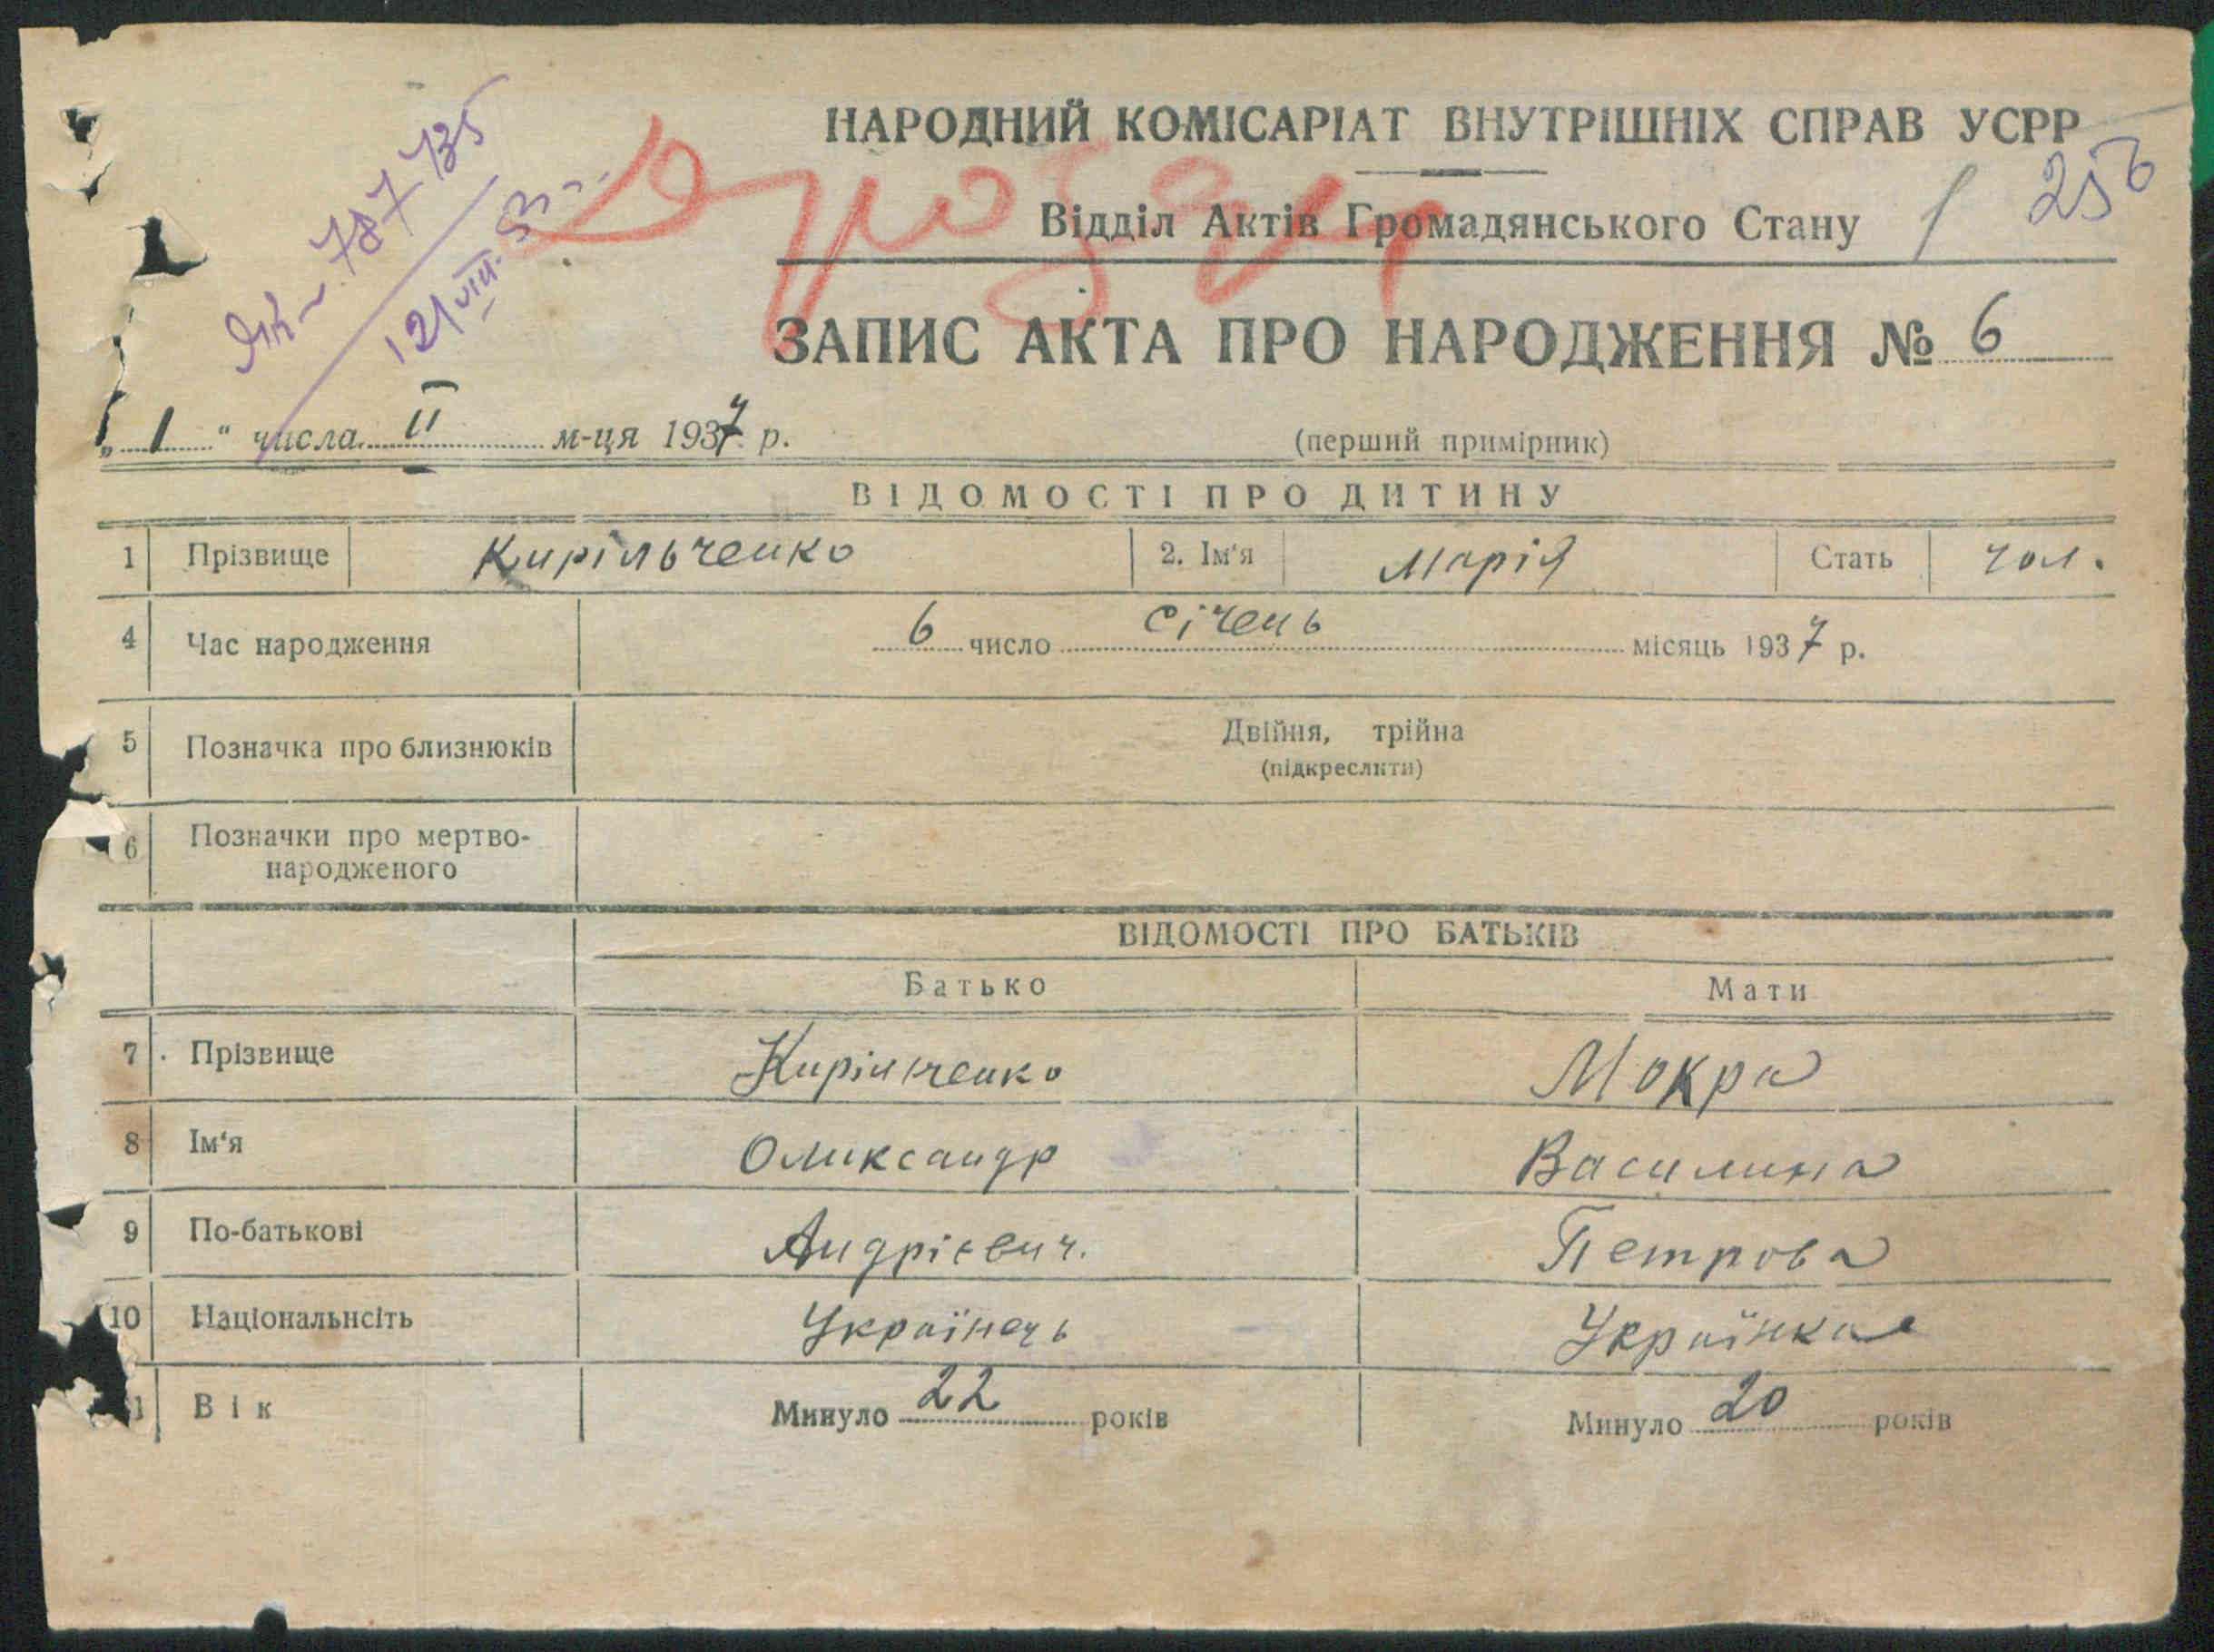 НАРОДНИЙ КОМІСАРІАТ ВНУТРІШНІХ СПРАВ УСРР
Відділ Актів Громадянського Стану
256
787735
21 VIII - 53 г.
ЗАПИС АКТА ПРО НАРОДЖЕННЯ № 6
„ 1 “ числа II м-ця 1937 р.
(перший примірник)
ВІДОМОСТІ ПРО ДИТИНУ
1 Прізвище Кирільченко 2. Ім'я Марія Стать чол.
4 Час народження 6 число січень місяць 1937 р.
5 Позначка про близнюків Двійня, трійна
(підкреслити)
6 Позначки про мертво-
народженого
ВІДОМОСТІ ПРО БАТЬКІВ
Батько Мати
7 Прізвище Кирільченко Мокра
8 Ім'я Олександр Василина
9 По-батькові Андрієвич. Петрова
10 Національнсіть Українець Українка
11 Вік Минуло 22 років Минуло 20 років